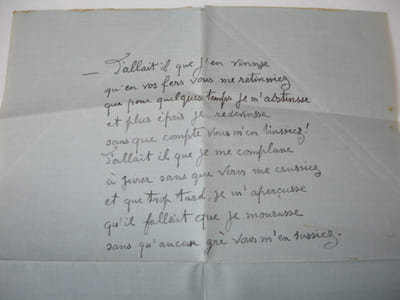 — Fallait il que j'en vinsse
qu'en vos fers vous me retinssiez
que pour quelques temps je m'abstinsse
et plus épris je redevinsse
sans que compte vous m'en tinssiez!
Fallait il que je me complusse
à jurer sans que vous me crussiez
et que trop tard, je m'aperçusse
qu'il fallait que je mourusse
sans qu'aucun gré vous m'en sussiez.